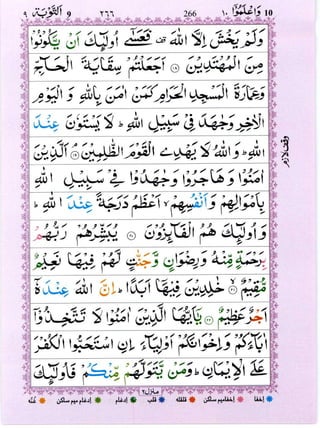 ٩ اَلتَّوْبَة 9 ٢٦٦ 266 ١٠ وَاعْلَمُوْٓا 10
وَلَمْ يَخْشَ اِلَّا اللّٰهَ فَعَسٰٓى اُولٰٓئِكَ اَنْ يَّكُوْنُوْا
مِنَ الْمُهْتَدِيْنَ ۝١٨ اَجَعَلْتُمْ سِقَايَةَ الْحَآجِّ
وَعِمَارَةَ الْمَسْجِدِ الْحَرَامِ كَمَنْ اٰمَنَ بِاللّٰهِ وَ الْيَوْمِ
الْاٰخِرِ وَجٰهَدَ فِيْ سَبِيْلِ اللّٰهِ ؕ لَا يَسْتَوٗنَ عِنْدَ
اللّٰهِ ؕ وَاللّٰهُ لَا يَهْدِي الْقَوْمَ الظّٰلِمِيْنَ ۝١٩ اَلَّذِيْنَ
اٰمَنُوْا وَ هَاجَرُوْا وَجٰهَدُوْا فِيْ سَبِيْلِ اللّٰهِ
بِاَمْوَالِهِمْ وَ اَنْفُسِهِمْ ۙ اَعْظَمُ دَرَجَةً عِنْدَ اللّٰهِ ؕ
وَ اُولٰٓئِكَ هُمُ الْفَآئِزُوْنَ ۝٢٠ يُبَشِّرُهُمْ رَبُّهُمْ
بِرَحْمَةٍ مِّنْهُ وَ رِضْوَانٍ وَّجَنّٰتٍ لَّهُمْ فِيْهَا نَعِيْمٌ
مُّقِيْمٌ ۝٢١ خٰلِدِيْنَ فِيْهَآ اَبَدًا ؕ اِنَّ اللّٰهَ عِنْدَهٗٓ
اَجْرٌ عَظِيْمٌ ۝٢٢ يٰٓاَيُّهَا الَّذِيْنَ اٰمَنُوْا لَا تَتَّخِذُوْٓا
اٰبَآءَكُمْ وَ اِخْوَانَكُمْ اَوْلِيَآءَ اِنِ اسْتَحَبُّوا الْكُفْرَ
عَلَى الْاِيْمَانِ ؕ وَمَنْ يَّتَوَلَّهُمْ مِّنْكُمْ فَاُولٰٓئِكَ
منزل ٢
اخفا اخفامیم ساکن قلقله قلب ادغام ادغام میم ساکن غنّه